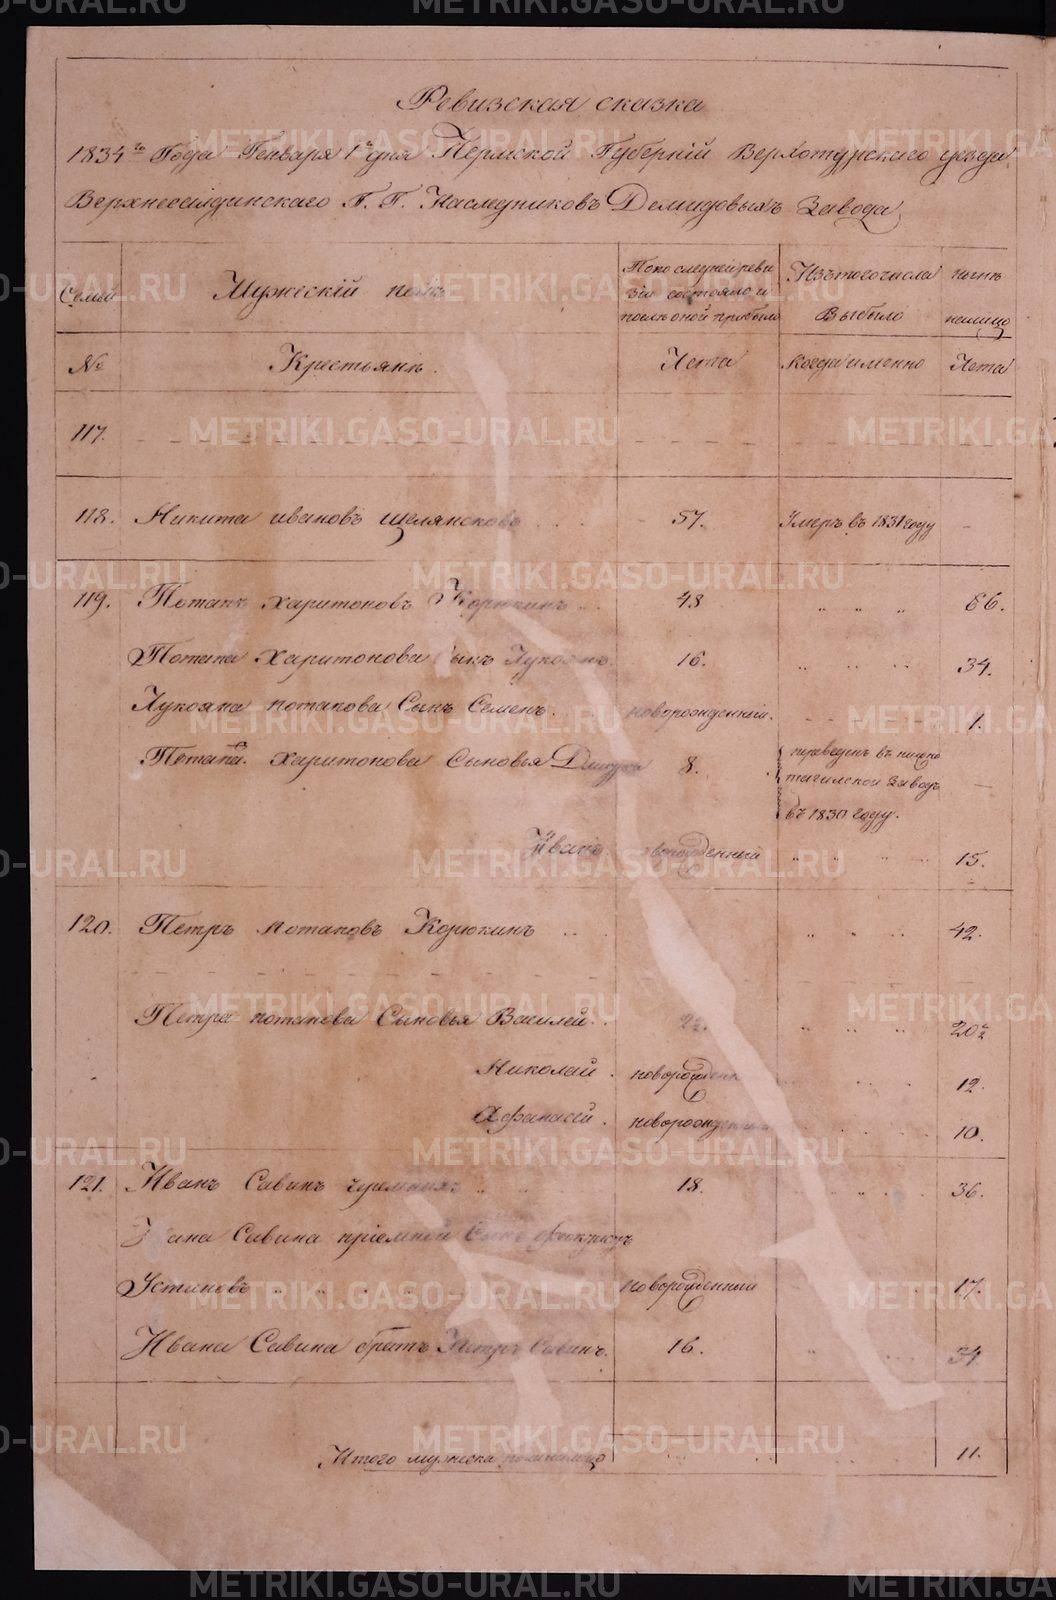 Ревизская сказка
1834го Года Генваря 1го дня Пермской Губернiи Верхотурскаго уезда
Верхнесалдинскаго Г. Г. Наследниковъ Демидовыхъ Завода
Семей Мужескiй полъ По последней реви зiи состояло и после оной прибыло Изъ того числа Выбыло ныне на лицо
№ Крестьяне. Лета Когда именно Лета
117.
118. Никита ивановъ 57. Умеръ въ 1831 году -
119. Потапъ харитоновъ Корюкинъ 48 " " " 66.
Потапа Харитонова Сынъ Лукоянъ. 16. " " " 34.
Лукояна потапова Сынъ Семенъ. новорожденнiй. 1.
Потапа. харитонова Сыновья 8. переведенъ въ нижно
тагилской Заводъ
въ 1830 году.
Иванъ новорожденный " " " 15.
120. Петръ потаповъ Корюкинъ " " " 42.
Петра потапова Сыновья Василей. 2½. " " " 20½
Николай. новорожденн 12.
Афанасей. новорожденный 10.
121. Иванъ Савинъ 18. 36.
Ивана Савина прiемной Сынъ
Устиновъ новорожденный 17.
Ивана Савина братъ Петръ Савинъ. 16. " 34.
Итого мужеска пола налицо 11.
METRIKI.GASO-URAL.RU